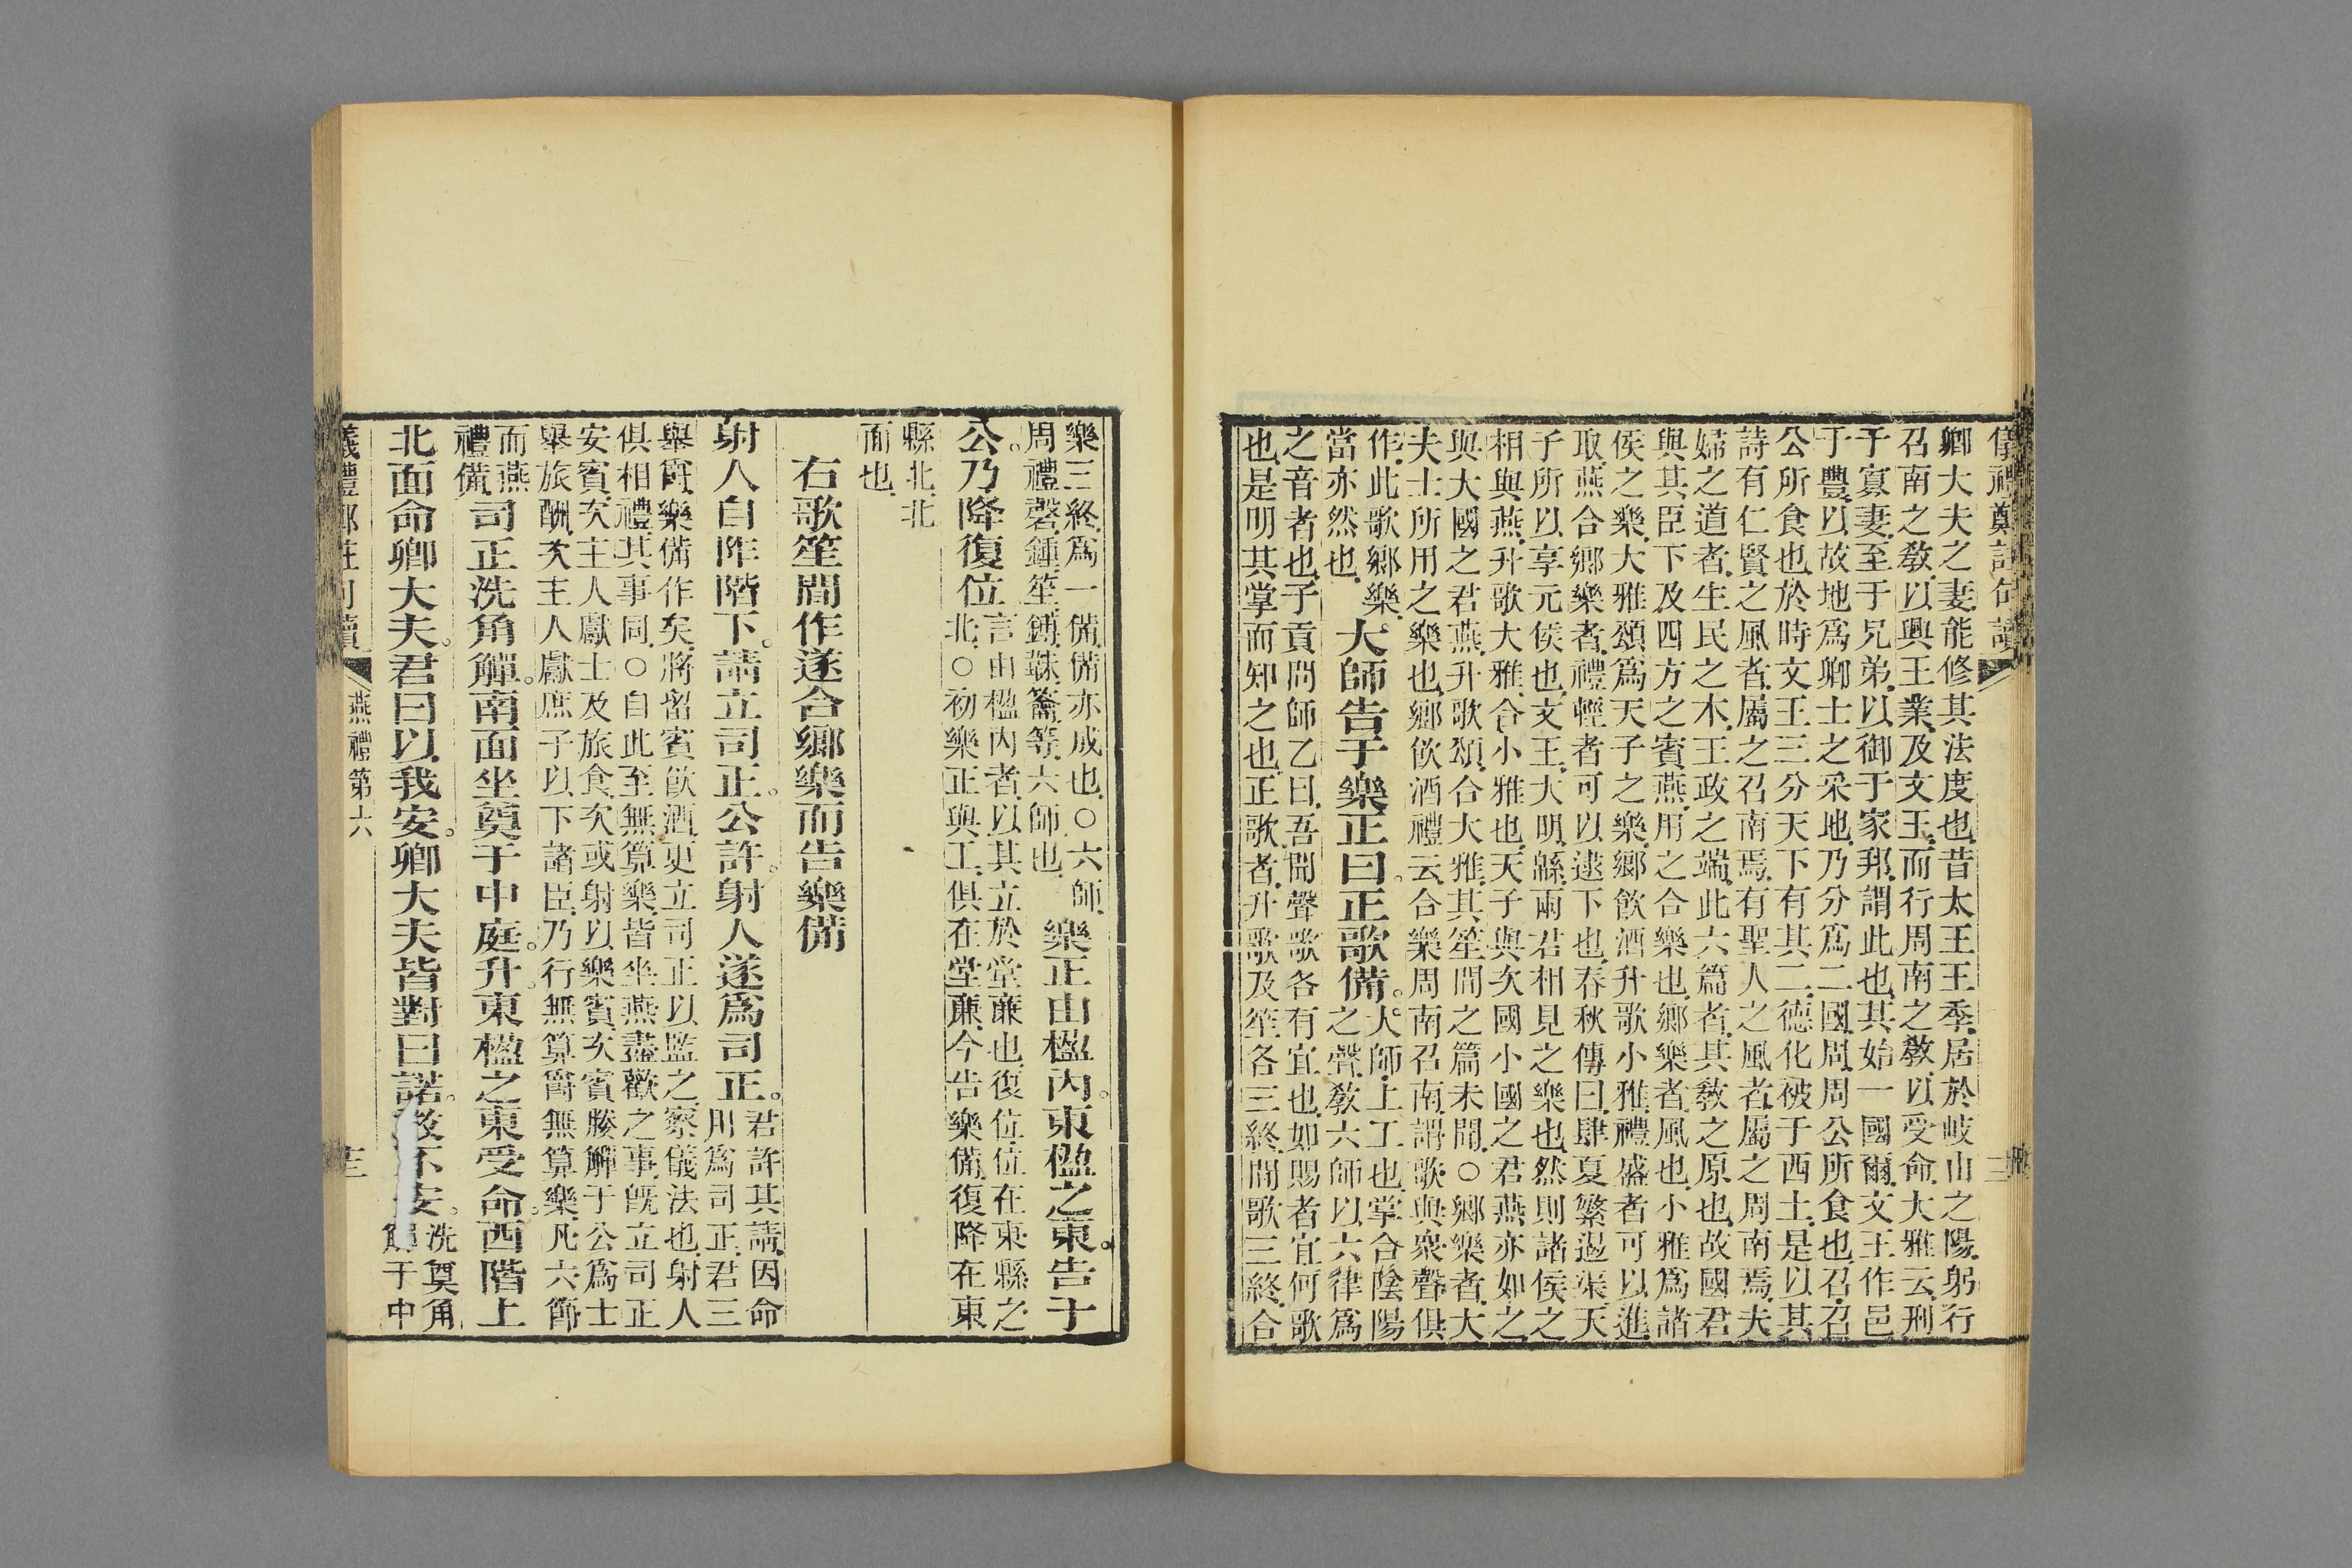 儀禮鄭註句讀
卿大夫之妻能修其法度也昔太王王季居於岐山之陽躬行
召南之敎以興王業及文王而行周南之敎以受命大雅云刑
于寡妻至于兄弟以御于家邦謂此也其始一國爾文王作邑
于豐以故地爲卿士之采地乃分爲二國周周公所食也召召
公所食也於時文王三分天下有其二德化被于西土是以其
詩有仁賢之風者屬之召南焉有聖人之風者屬之周南焉夫
婦之道者生民之本王政之端此六篇者其敎之原也故國君
與其臣下及四方之賓燕用之合樂也鄉樂者風也小雅爲諸
侯之樂大雅頌爲天子之樂鄉飮酒升歌小雅禮盛者可以進
取燕合鄉樂者禮輕者可以逮下也春秋傳曰肆夏繁遏渠天
子所以享元侯也文王大明緜兩君相見之樂也然則諸侯之
相與燕升歌大雅合小雅也天子與次國小國之君燕亦如之
與大國之君燕升歌頌合大雅其笙間之篇未聞○鄉樂者大
夫士所用之樂也鄉飮酒禮云合樂周南召南謂歌與衆聲俱
作此歌鄉樂
當亦然也
大師告于樂正曰正歌備
大師上工也掌合陰陽
之聲敎六師以六律爲
之音者也子貢問師乙曰吾聞聲歌各有宜也如賜者宜何歌
也是明其掌而知之也正歌者升歌及笙各三終間歌三終合
樂三終爲一備備亦成也○六師
周禮磬鍾笙鎛韎籥等六師也
樂正由楹內東楹之東告于
公乃降復位
言由楹內者以其立於堂廉也復位位在東縣之
北○初樂正與工俱在堂廉今告樂備復降在東
縣北北
面也
右歌笙間作遂合鄉樂而告樂備
射人自阼階下請立司正公許射人遂爲司正
君許其請因命
用爲司正君三
舉爵樂備作矣將留賓飮酒更立司正以監之察儀法也射人
俱相禮其事同○自此至無算樂皆坐燕盡歡之事旣立司正
安賓次主人獻士及旅食次或射以樂賓次賓媵觶于公爲士
舉旅酬次主人獻庶子以下諸臣乃行無算爵無算樂凡六節
而燕
禮備
司正洗角觶南面坐奠于中庭升東楹之東受命西階上
北面命卿大夫君曰以我安卿大夫皆對曰諾敢不安
洗奠角
觶于中
儀禮鄭註句讀
燕禮第六